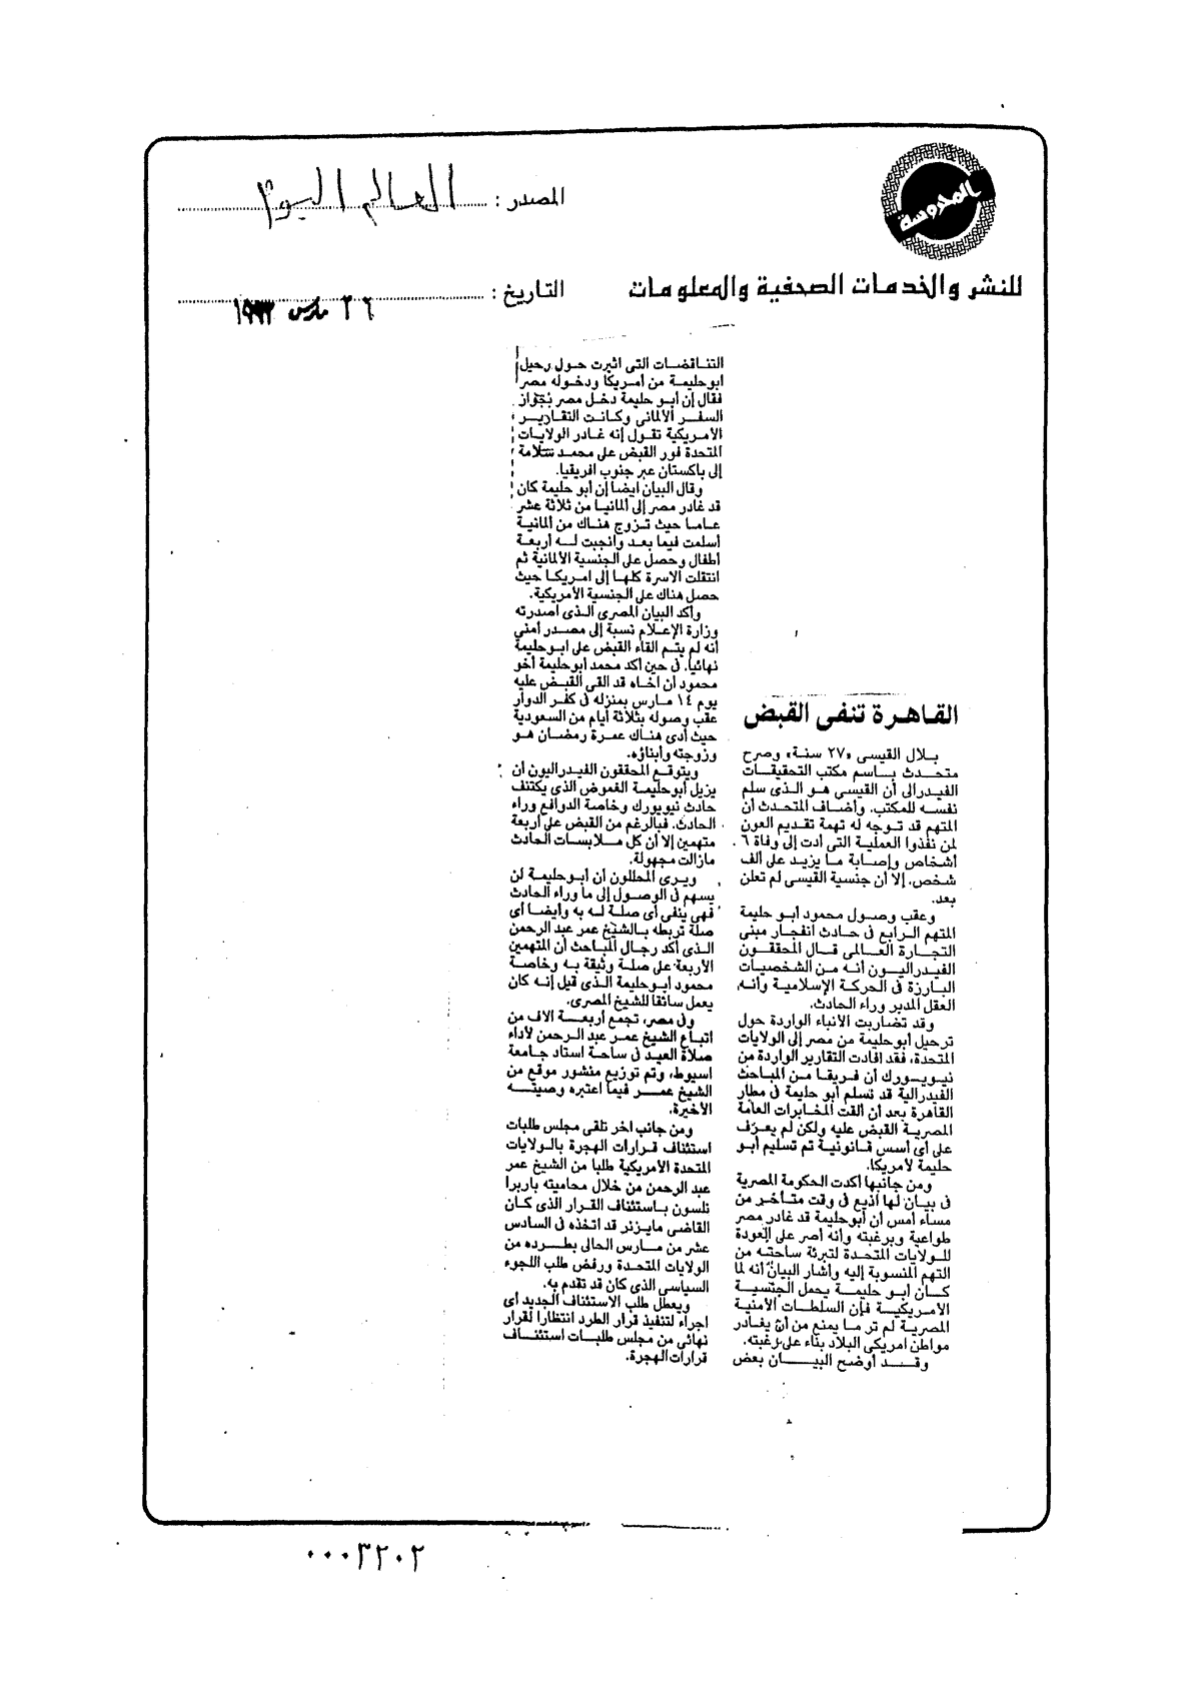 المحروسة
المصدر : العالم اليوم
للنشر والخدمات الصحفية والمعلومات
التاريخ : ٢٦ مارس ١٩٩٣
القاهرة تنفى القبض
بلال القيسى «٢٧ سنة» وصرح
متحدث باسم مكتب التحقيقات
الفيدرالى أن القيسى هو الذى سلم
نفسه للمكتب. وأضاف المتحدث أن
المتهم قد توجه له تهمة تقديم العون
لمن نفذوا العملية التى أدت إلى وفاة ٦
أشخاص وإصابة ما يزيد على ألف
شخص. إلا أن جنسية القيسى لم تعلن
بعد.
وعقب وصول محمود أبو حليمة
المتهم الرابع فى حادث انفجار مبنى
التجارة العالمى قال المحققون
الفيدراليون أنه من الشخصيات
البارزة فى الحركة الإسلامية وأنه
العقل المدبر وراء الحادث.
وقد تضاربت الأنباء الواردة حول
ترحيل أبوحليمة من مصر إلى الولايات
المتحدة، فقد افادت التقارير الواردة من
نيويورك أن فريقا من المباحث
الفيدرالية قد تسلم أبو حليمة فى مطار
القاهرة بعد أن ألقت المخابرات العامة
المصرية القبض عليه ولكن لم يعرف
على أى أسس قانونية تم تسليم أبو
حليمة لأمريكا.
ومن جانبها أكدت الحكومة المصرية
فى بيان لها أذيع فى وقت متأخر من
مساء أمس أن أبوحليمة قد غادر مصر
طواعية وبرغبته وأنه أصر على العودة
للولايات المتحدة لتبرئة ساحته من
التهم المنسوبة إليه وأشار البيان أنه لما
كان أبو حليمة يحمل الجنسية
الأمريكية فإن السلطات الأمنية
المصرية لم تر ما يمنع من أن يغادر
مواطن امريكى البلاد بناء على رغبته.
وقد أوضح البيان بعض
التناقضات التى اثيرت حول رحيل
ابوحليمة من أمريكا ودخوله مصر
فقال إن أبو حليمة دخل مصر بجواز
السفر الألمانى وكانت التقارير
الأمريكية تقول إنه غادر الولايات
المتحدة فور القبض على محمد سلامة
إلى باكستان عبر جنوب افريقيا.
وقال البيان ايضا إن أبو حليمة كان
قد غادر مصر إلى ألمانيا من ثلاثة عشر
عاما حيث تزوج هناك من ألمانية
أسلمت فيما بعد وأنجبت له أربعة
أطفال وحصل على الجنسية الألمانية ثم
انتقلت الاسرة كلها إلى امريكا حيث
حصل هناك على الجنسية الأمريكية.
وأكد البيان المصرى الذى اصدرته
وزارة الإعلام نسبة إلى مصدر أمنى
أنه لم يتم القاء القبض على ابوحليمة
نهائيا. فى حين أكد محمد ابوحليمة أخو
محمود أن اخاه قد القى القبض عليه
يوم ١٤ مارس بمنزله فى كفر الدوار
عقب وصوله بثلاثة أيام من السعودية
حيث أدى هناك عمرة رمضان هو
وزوجته وأبناؤه.
ويتوقع المحققون الفيدراليون أن
يزيل أبوحليمة الغموض الذى يكتنف
حادث نيويورك وخاصة الدوافع وراء
الحادث. فبالرغم من القبض على أربعة
متهمين إلا أن كل ملابسات الحادث
مازالت مجهولة.
ويرى المحللون أن أبوحليمة لن
يسهم فى الوصول إلى ما وراء الحادث
فهى ينفى أى صلة له به وأيضا أى
صلة تربطه بالشيخ عمر عبد الرحمن
الذى أكد رجال المباحث أن المتهمين
الأربعة على صلة وثيقة به وخاصة
محمود ابوحليمة الذى قيل إنه كان
يعمل سائقا للشيخ المصرى.
وفى مصر، تجمع أربعة الاف من
اتباع الشيخ عمر عبد الرحمن لأداء
صلاة العيد فى ساحة استاد جامعة
اسيوط، وتم توزيع منشور موقع من
الشيخ عمر فيما اعتبره وصيته
الأخيرة.
ومن جانب اخر تلقى مجلس طلبات
استئناف قرارات الهجرة بالولايات
المتحدة الأمريكية طلبا من الشيخ عمر
عبد الرحمن من خلال محاميته باربرا
نلسون باستئناف القرار الذى كان
القاضى مايزنر قد اتخذه فى السادس
عشر من مارس الحالى بطرده من
الولايات المتحدة ورفض طلب اللجوء
السياسى الذى كان قد تقدم به.
ويعطل طلب الاستئناف الجديد أى
اجراء لتنفيذ قرار الطرد انتظارا لقرار
نهائى من مجلس طلبات استئناف
قرارات الهجرة.
٠٠٠٣٢٠٢